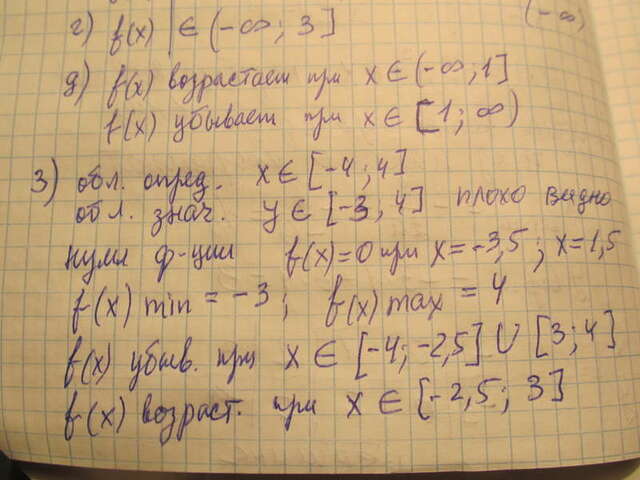 (-∞
г) f(x) ∈ (-∞; 3]
д) f(x) возрастает при x ∈ (-∞; 1]
f(x) убывает при x ∈ [1; ∞)
3) обл. опред. x ∈ [-4; 4]
обл. знач. y ∈ [-3, 4] плохо видно
нули ф-ции f(x)=0 при x=-3,5; x=1,5
f(x) min = -3; f(x) max = 4
f(x) убыв. при x ∈ [-4; -2,5] ∪ [3; 4]
f(x) возраст. при x ∈ [-2,5; 3]